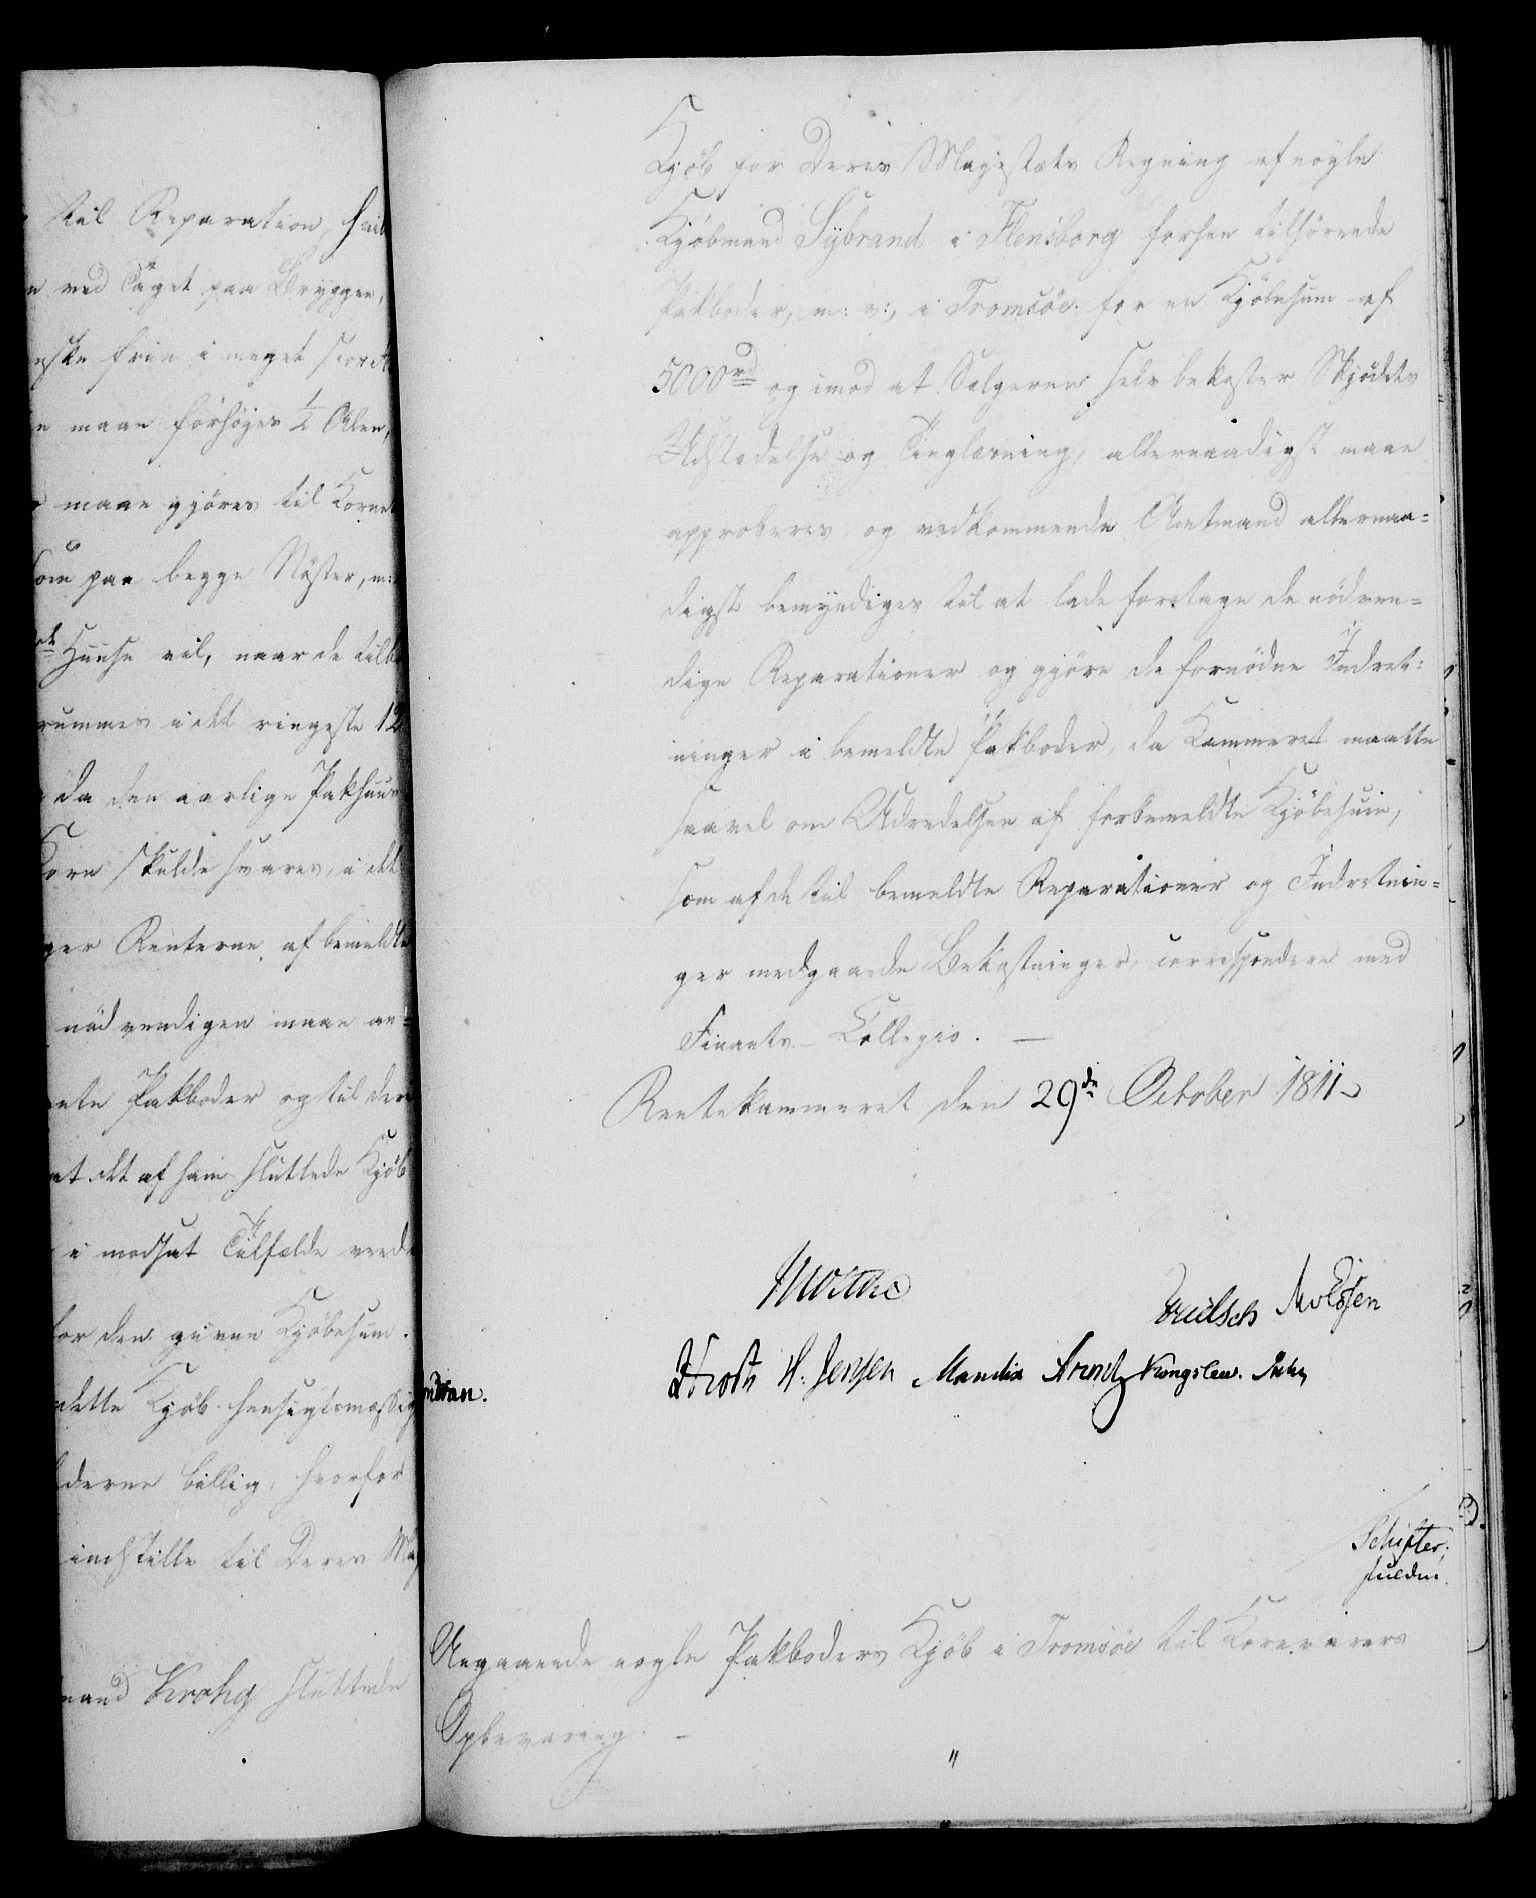 til Reparation, hvil
ved Taget paa Bryggen,
nske frie i meget
maae forhøjes ½ Alen,
maae gjøres til Korne
som paa begge Nøster, m:
Huuse vil, naar de tilb
rummes i det ringeste 12
da den aarlige Pakhuus
Korn skulde svares, i det
ger Renterne af bemeldte
nødvendigen maae an=
Pakboder og til der
at det af ham sluttede Kjøb
i modsat Tilfælde vred
for den givne Kjøbesum.
dette Kjøb hensigtsmæssig
derne billig, hvorfor
indstille til Deres Maj
mand Krohg sluttede
Kjøb for Deres Majestæts Regning af nogle
Kjøbmand Sybrand i Flensborg forhen tilhörende
Pakboder, m: v:, i Tromsöe for en Kjöbesum af
5000 rd og imod at Sælgeren selv bekoster Skjødets
Udstædelse og Tinglæsning, allernaadigst maae
approberes, og vedkommende Amtmand allernaa=
digst bemyndiges til at lade foretage de nödven=
dige Reparationer og gjöre de fornödne Indret=
ninger i bemeldte Pakboder, da Kammeret maatte
saavel om Udredelsen af forbemeldte Kjöbesum,
som af de til bemeldte Reparationer og Indretnin=
ger medgaaende Bekostninger, correspondere med
Finants-Collegio. —
Rentekammeret den 29de October 1811
Moltke
Knudsen
H. Jensen Mandix Arntz Kongslew.
Schifter.
Angaaende nogle Pakboders Kjöb i Tromsöe til Kornvarers
Opbevaring. –